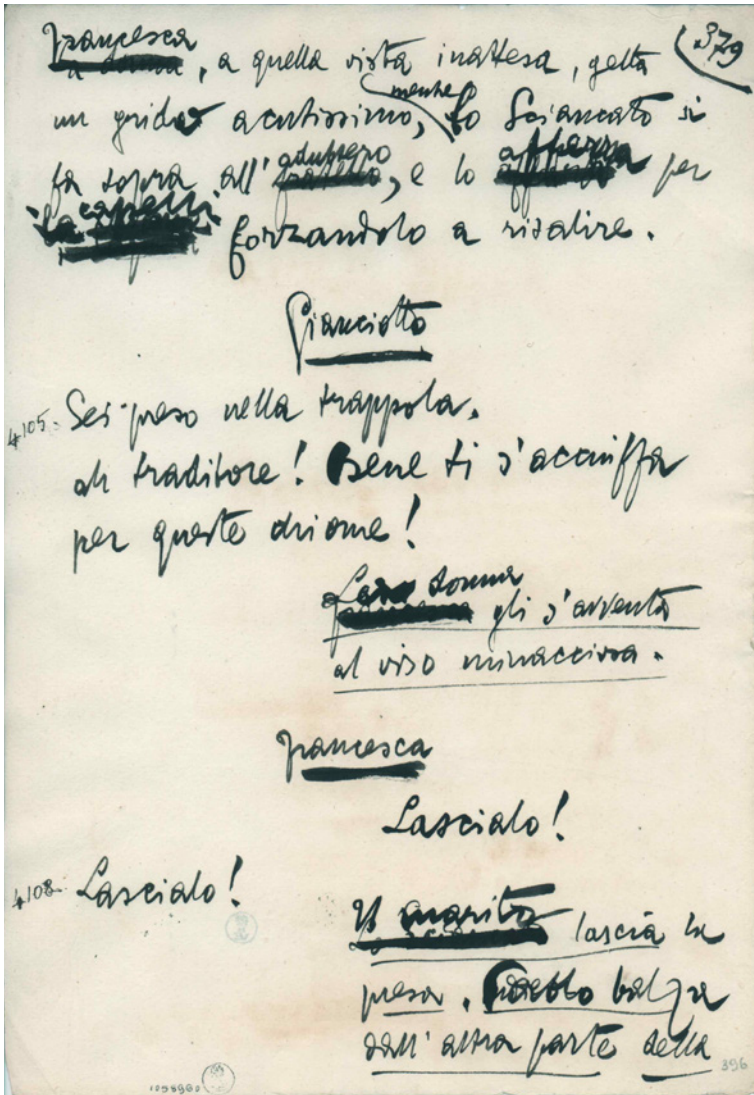 Francesca 379
la donna, a quella vista inattesa, getta
mentre
un grido acutissimo, lo Sciancato si
adultero afferra
fa sopra all' fratello, e lo per
capelli
forzandolo a risalire.
Gianciotto
4105. Sei preso nella trappola,
ah traditore! Bene ti s'acciuffa
per queste chiome!
La donna
gli s'avventa
al viso minacciosa.
Francesca
Lascialo!
4108. Lascialo!
Il marito
lascia la
presa. Paolo balza
dall'altra parte della
396
1058960